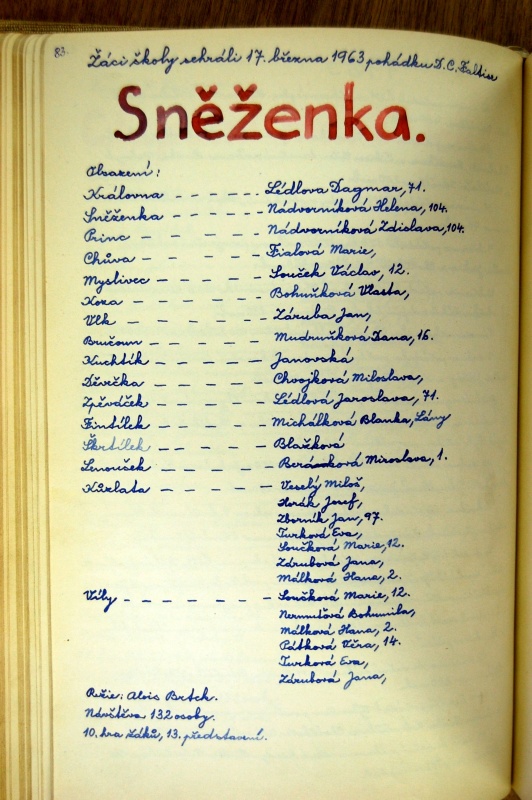 83.
Žáci školy sehráli 17. března 1963 pohádku D. C. Faltise
Sněženka.
Obsazení:
Královna - - - - - Lédlova Dagmar, 71.
Sněženka - - - - - - Nádvorníková Helena, 104.
Princ - - - - - Nádvorníková Zdislava, 104.
Chůva - - - - - Fialová Marie,
Myslivec - - - - - Souček Václav, 12.
Koza - - - - - - Bohuňková Vlasta,
Vlk - - - - - - Záruba Jan,
Bručoun - - - - - Mudruňková Dana, 16.
Kuchtík - - - - - Janovská
Děvečka - - - - - Chvojková Miloslava,
Zpěváček - - - - - Lédlová Jaroslava, 71.
Fintílek - - - - - Michálková Blanka, Lány
Škrtílek - - - - - Blažková
Lenouček - - - - - Beránková Miroslava, 1.
Kůzlata - - - - - Veselý Miloš,
Horák Josef,
Zborník Jan, 97.
Turková Eva,
Součková Marie, 12.
Zárubová Jana,
Málková Hana, 2.
Víly - - - - - - - - Součková Marie, 12.
Nermuťová Bohumila,
Málková Hana, 2.
Pátková Věra, 14.
Turková Eva,
Zárubová Jana,
Režie: Alois Brtek.
Návštěva 132 osoby.
10. hra žáků, 13. představení.